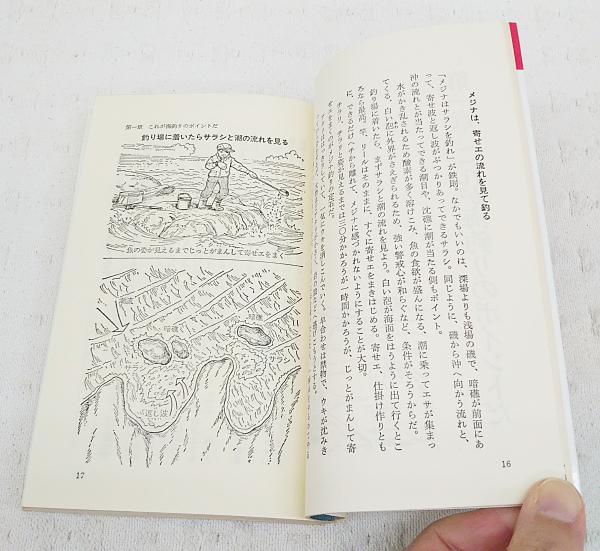 メジナは、寄せエの流れを見て釣る
「メジナはサラシを釣れ」が鉄則。なかでもいいのは、深場よりも浅場の磯で、暗礁が前面にあ
って、寄せ波と返し波がぶつかりあってできるサラシ。同じように、磯から沖へ向かう流れと、
沖の流れとが当たってできる潮目や、沈礁に潮が当たる側もポイント。
水がかき乱されるため酸素が多く溶けこみ、魚の食欲が盛んになる、潮に乗ってエサが集まっ
てくる、白い泡に外界がさえぎられるため、強い警戒心が和らぐなど、条件がそろうからだ。
釣り場に着いたら、まずサラシと潮の流れを見よう。白い泡が海面をはうように出て行くとこ
ろなら最高。竿、リールはそのままに、すぐに寄せエをまきはじめる。寄せエ、仕掛け作りとも
に、できるだけへチから離れて、メジナに感づかれないようにすることが大切。
チラリ、チラリと姿が見えるまでは三〇分かかろうが一時間かかろうが、じっとがまんして寄
せエをまくのがメジナ釣りの定石だ。
16
第一章 これが海釣りのポイントだ
釣り場に着いたらサラシと潮の流れを見る
魚の姿が見えるまでじっとがまんして寄せエをまく
暗礁
暗礁
サラシ
サラシ
返し波
17